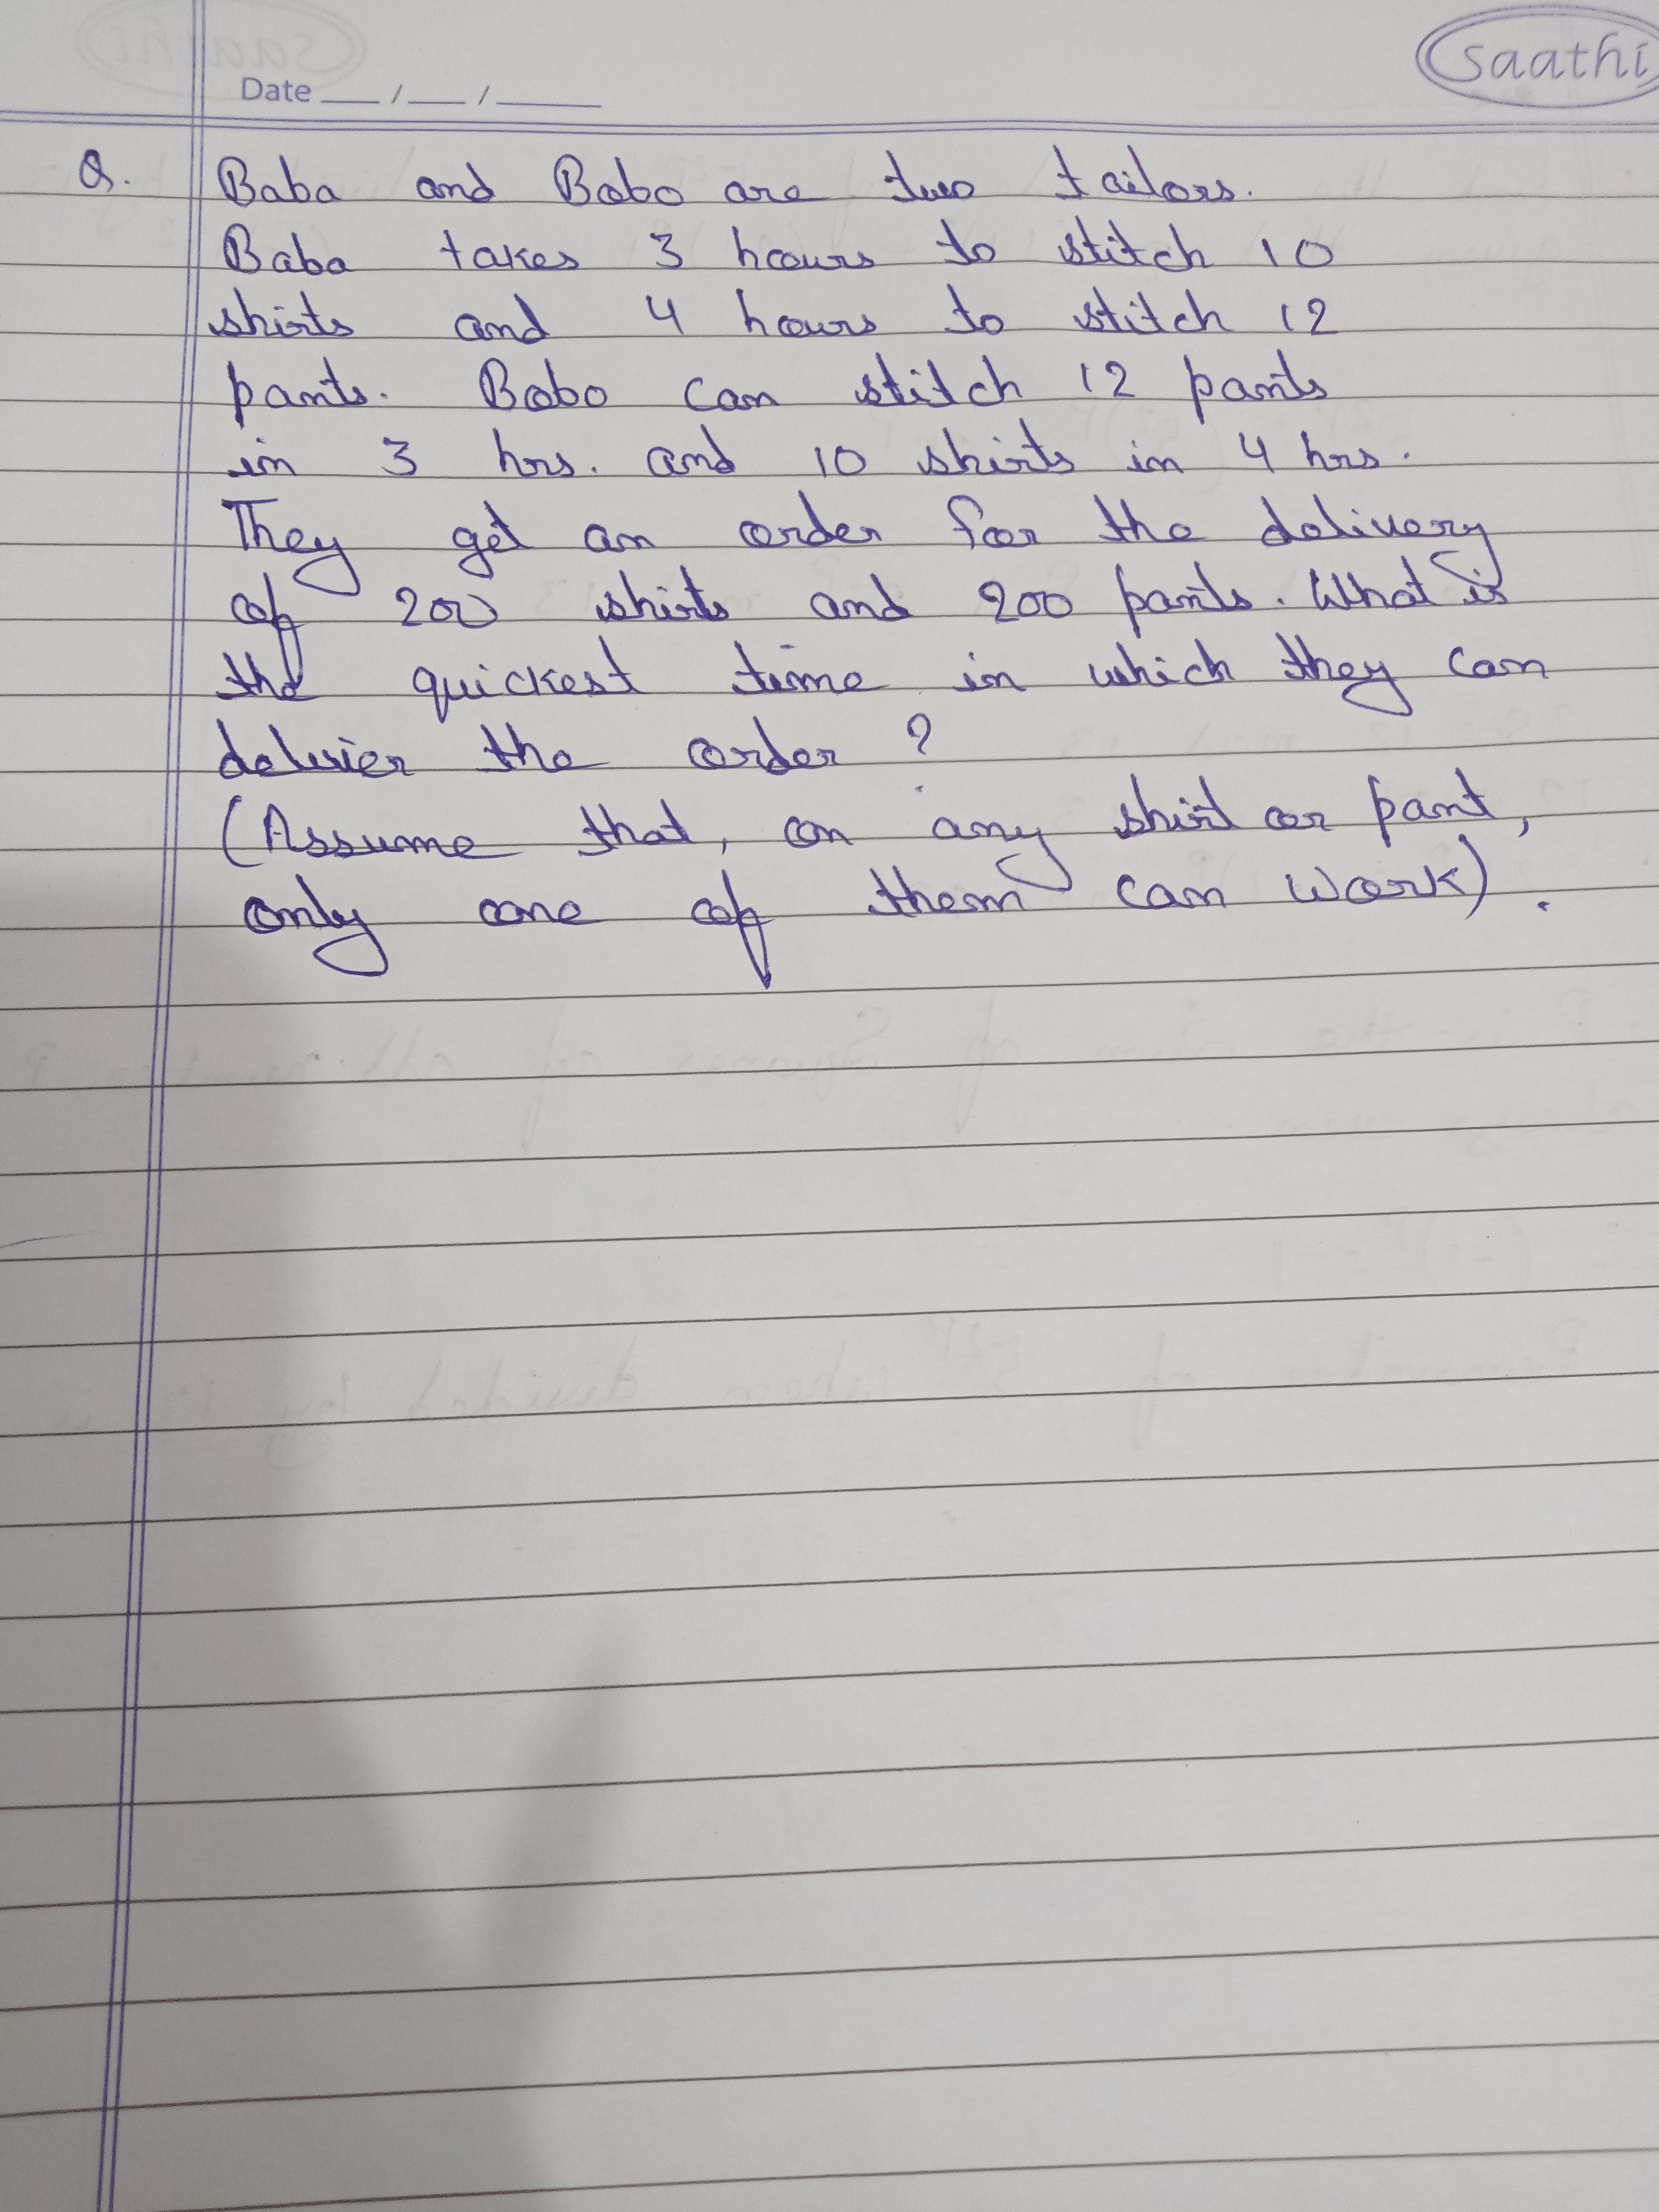 saathi
Date __/__/____
Q. Baba and Bobo are two tailors.
Baba takes 3 hours to stitch 10
shirts and 4 hours to stitch 12
pants. Bobo can stitch 12 pants
in 3 hrs. and 10 shirts in 4 hrs.
They get an order for the delivery
of 200 shirts and 200 pants. What is
the quickest time in which they can
delivier the order ?
(Assume that, on any shirt or pant,
only one of them can work).